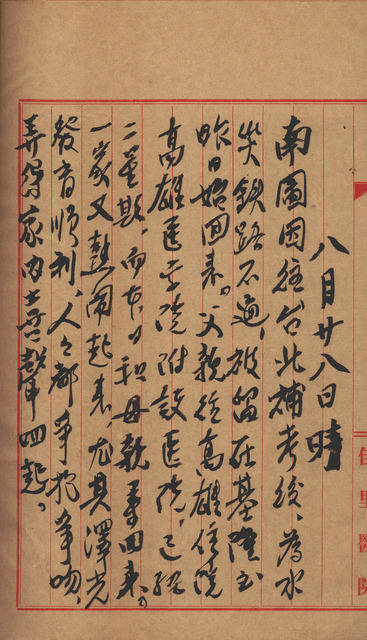 八月廿八日晴
南圖因往台北補考後、為水
災鐵路不通、被留在基隆、至
昨日始回来。父親從高雄住院
高雄医学院附設医院、已經
二星期、而本日和母親回来、
一家又熱鬧起来、尤其澤光
發育順利、人々都爭抱爭吻、
弄得家內喜聲四起。
佳里醫院